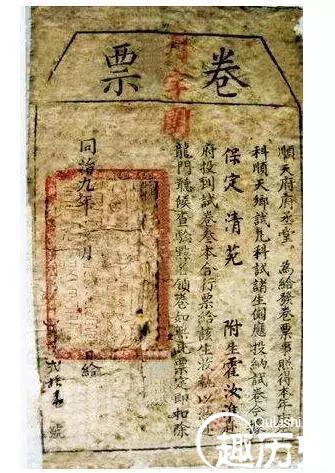 卷票
順天府府丞堂 為給發卷票事照得本年
科順天鄉試凡科試諸生例應投納試卷合
保定清苑 附生霍汝
府投到試卷叁本合行票給該生收執以
龍門聽候查驗 領卷如無此票定即扣除
同治九年 月 日給
號
QuLiShi.
趣历